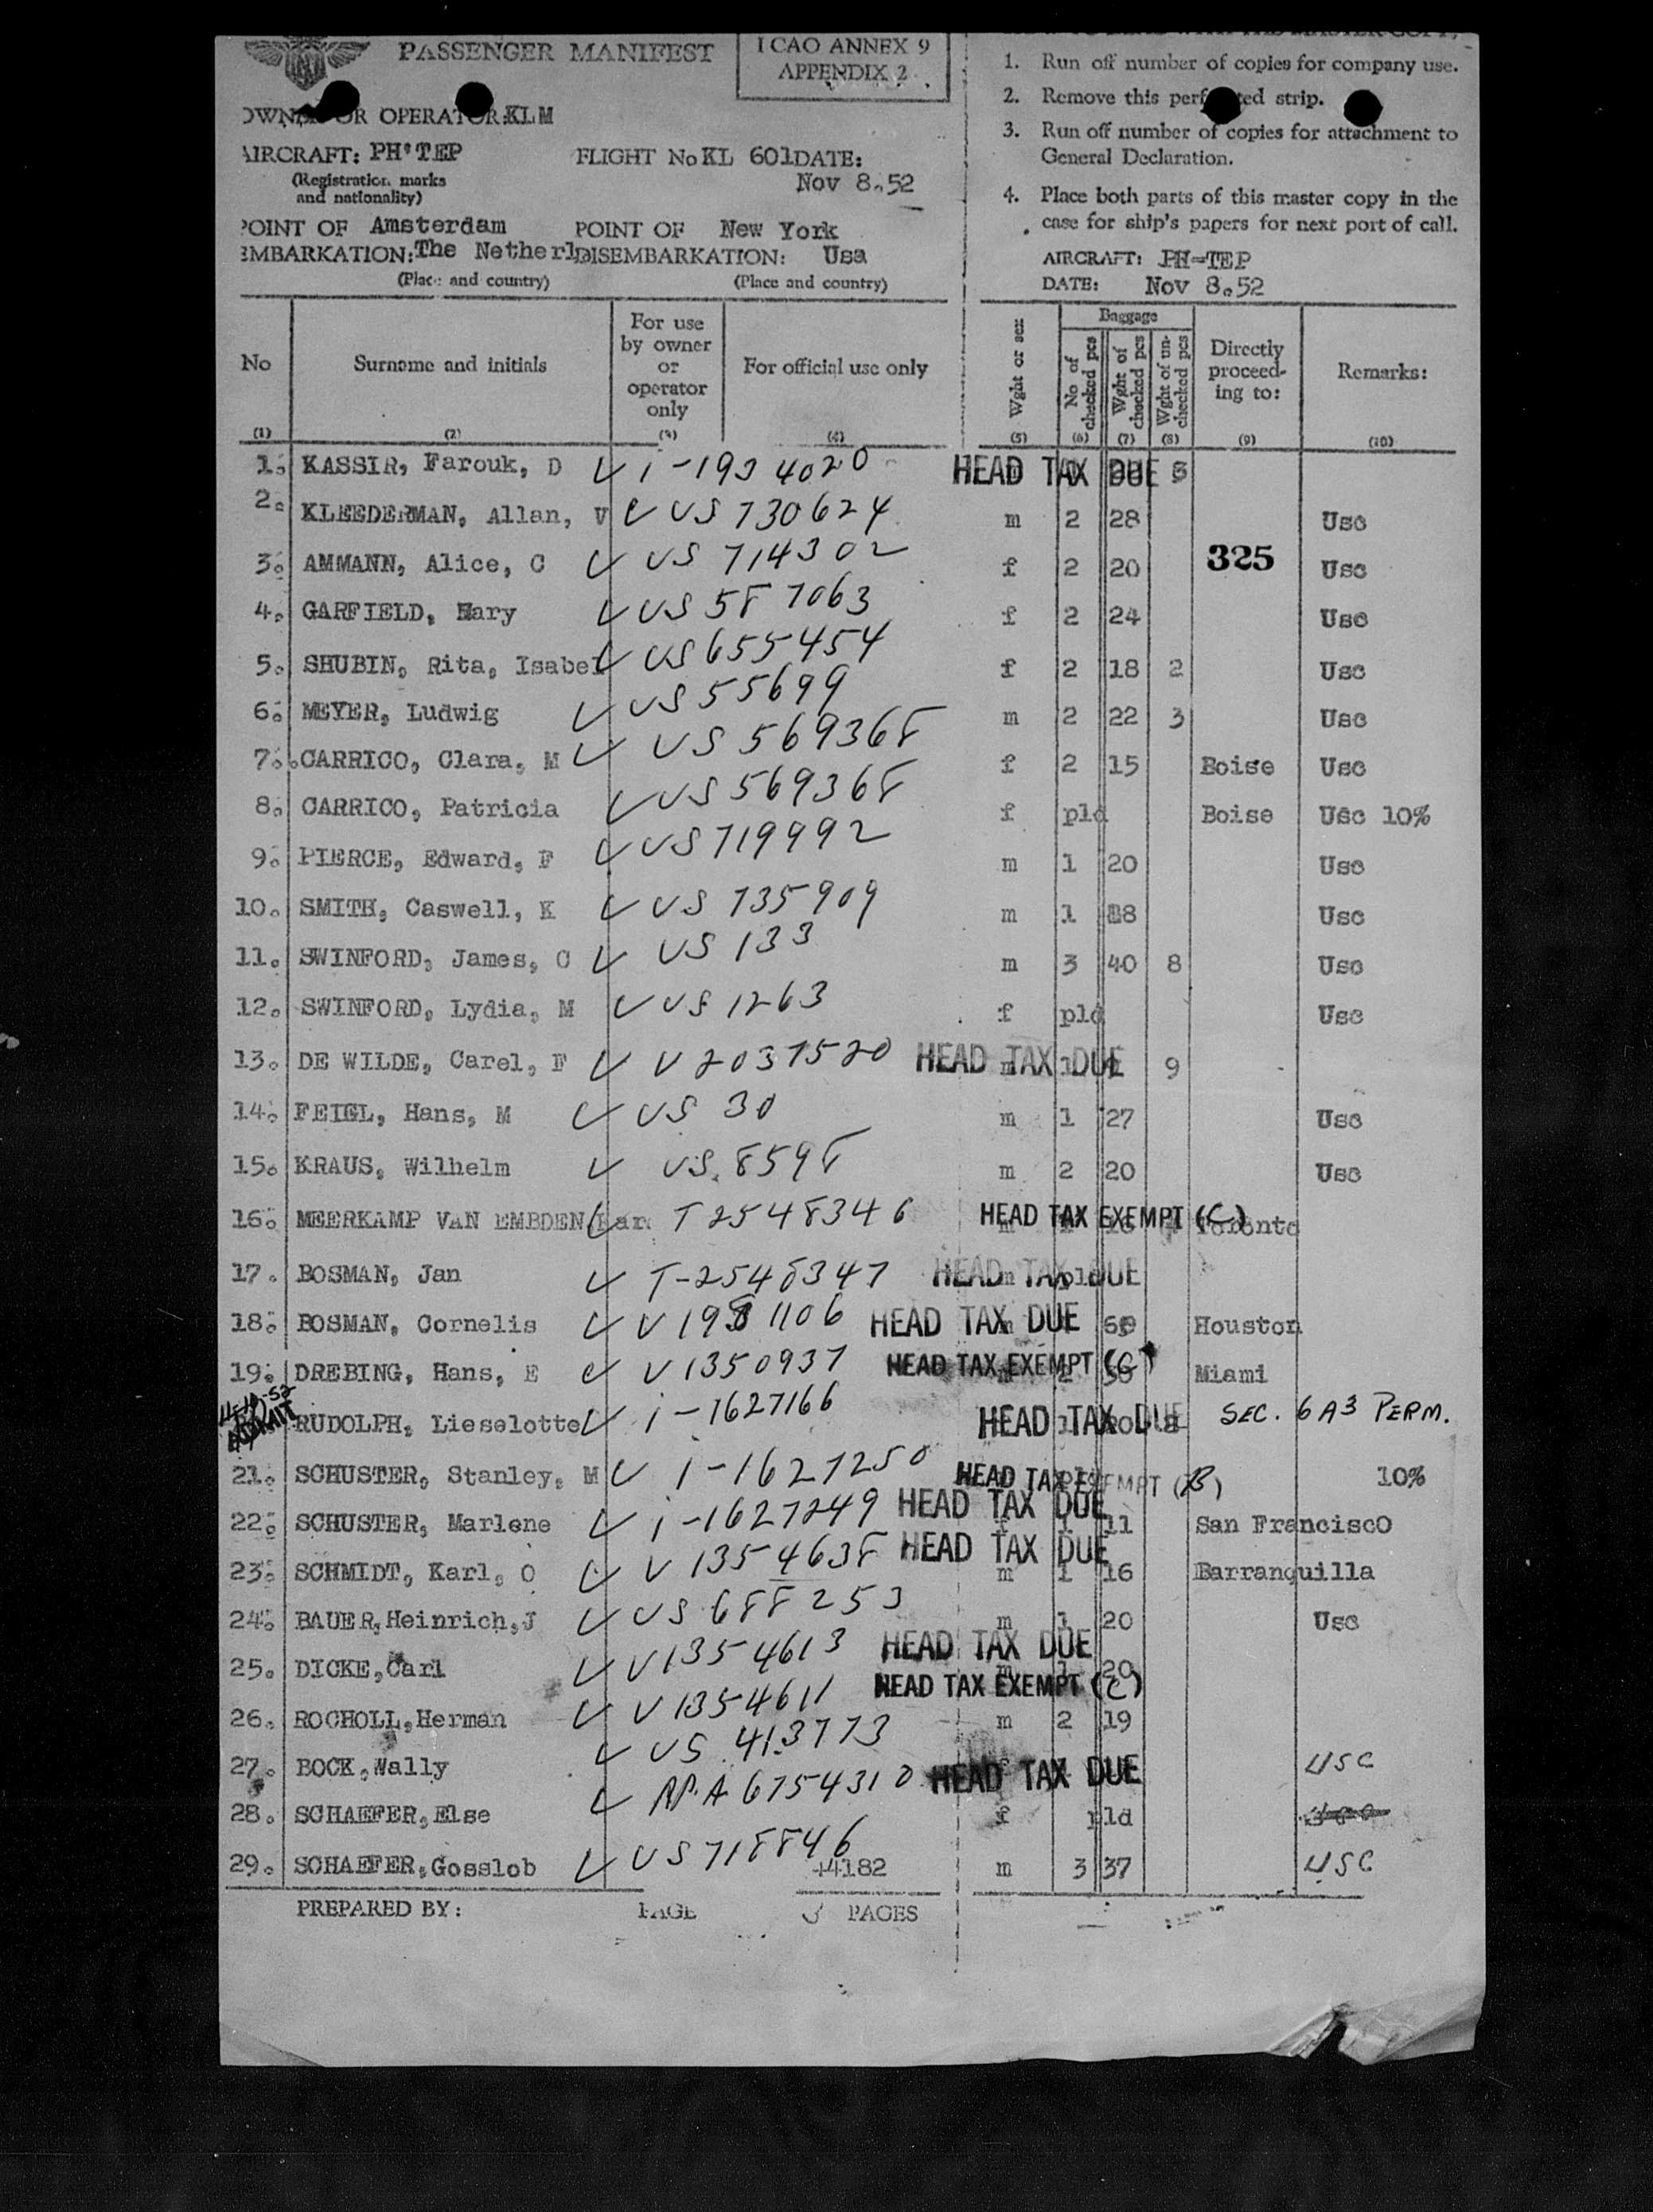 PASSENGER MANIFEST
ICAO ANNEX 9
APPENDIX 2
1. Run off number of copies for company use.
2. Remove this strip.
3. Run off number of copies for attachment to
General Declaration.
4. Place both parts of this master copy in the
case for ship's papers for next port of call.
OR OPERATOR: KLM
AIRCRAFT: PH-TEP
FLIGHT No KL 601 DATE:
(Registration marks
and nationality)
Nov 8.52
POINT OF Amsterdam
EMBARKATION: The Netherl
POINT OF New York
DISEMBARKATION: Usa
(Place and country) (Place and country)
AIRCRAFT: PH-TEP
DATE: Nov 8.52
No
Surname and initials
For use
by owner
or
operator
only
For official use only
Wght or sex
Baggage
No of
checked pcs
Wght of
checked pcs
Wght of un-
checked pcs
Directly
proceed-
ing to:
Remarks:
(1) (2) (3) (4) (5) (6) (7) (8) (9) (10)
1. KASSIR, Farouk, D i-1934020 HEAD TAX DUE
2. KLEEDERMAN, Allan, V US 730624 m 2 28 Usc
3. AMMANN, Alice, C US 714302 f 2 20 325 Usc
4. GARFIELD, Mary US 587063 f 2 24 Usc
5. SHUBIN, Rita, Isabel US 655454 f 2 18 2 Usc
6. MEYER, Ludwig US 55699 m 2 22 3 Usc
7. CARRICO, Clara, M US 569368 f 2 15 Boise Usc
8. CARRICO, Patricia US 569368 f pld Boise Usc 10%
9. PIERCE, Edward, F US 719992 m 1 20 Usc
10. SMITH, Caswell, K US 735909 m 1 18 Usc
11. SWINFORD, James, C US 133 m 3 40 8 Usc
12. SWINFORD, Lydia, M US 1263 f pld Usc
13. DE WILDE, Carel, F V 2037520 HEAD TAX DUE m 1 9
14. FEIGL, Hans, M US 30 m 1 27 Usc
15. KRAUS, Wilhelm US. 8598 m 2 20 Usc
16. MEERKAMP VAN EMBDEN T 2548346 HEAD TAX EXEMPT (C) Toronto
17. BOSMAN, Jan T-2548347 HEAD TAX DUE m pld
18. BOSMAN, Cornelis V 1981106 HEAD TAX DUE Houston
19. DREBING, Hans, E V 1350937 HEAD TAX EXEMPT (C) Miami
ADMIT
RUDOLPH, Lieselotte i-1627166 HEAD TAX DUE SEC. 6A3 PERM.
21. SCHUSTER, Stanley, M i-1627250 HEAD TAX EXEMPT (B) 10%
22. SCHUSTER, Marlene i-1627249 HEAD TAX DUE f 1 11 San Francisco
23. SCHMIDT, Karl, O V 1354638 HEAD TAX DUE m 1 16 Barranquilla
24. BAUER, Heinrich, J US 688253 m 1 20 Usc
25. DICKE, Carl V 1354613 HEAD TAX DUE m 1 20
26. ROCHOLL, Herman V 1354611 HEAD TAX EXEMPT (C) m 2 19
27. BOCK, Wally US 413773 USC
28. SCHAEFER, Else RP.A 6754310 HEAD TAX DUE f pld
29. SCHAEFER, Gosslob US 718846 m 3 37 USC
44182
PREPARED BY: PAGE 3 PAGES